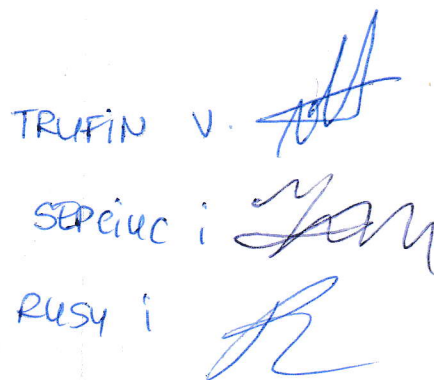 TRUFIN V.
SEPCIUC i
RUSU i